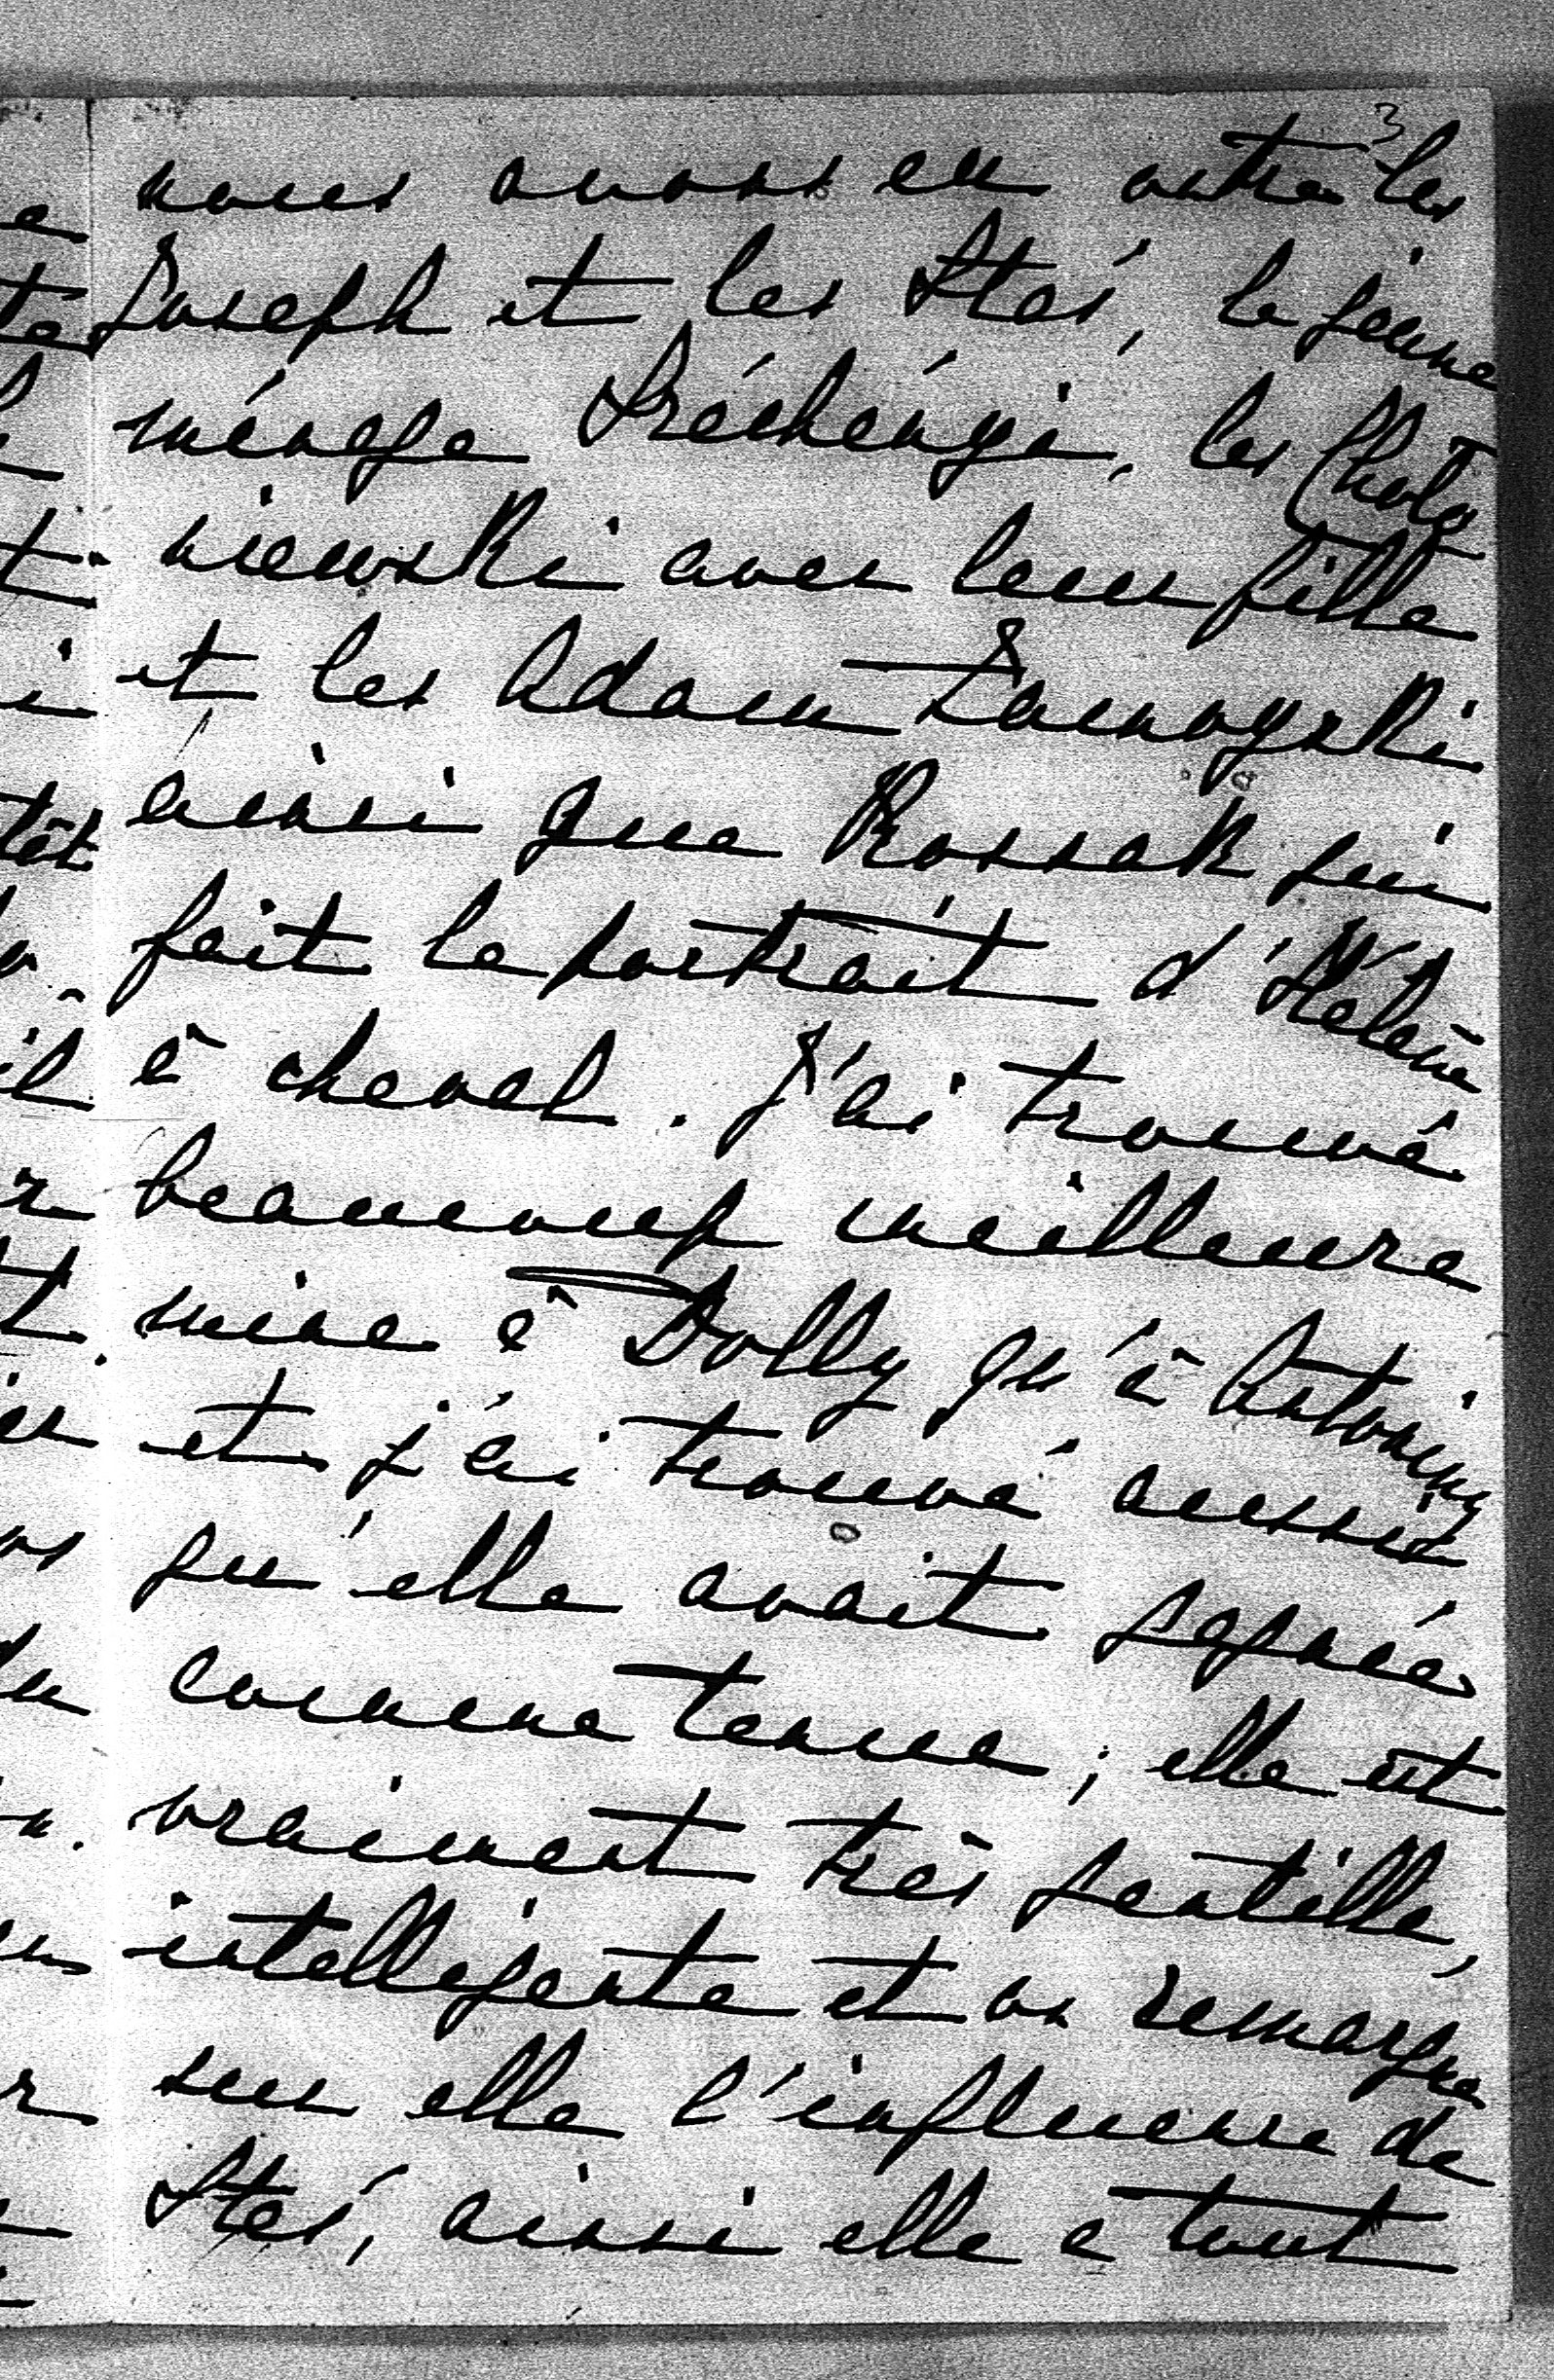 3
nous avons eu outre les
Joseph et les Staś, le jeune
ménage Széchényi, les Cholo-
niewski avec leur fille
et les Adam Zamoyski
ainsi que Kossak qui
fait le portrait d'Hélène
à cheval. J'ai trouvé
beaucoup meilleure
mine à Dolly qu'à Antoniny
et j'ai trouvé aussi
qu'elle avait gagnée
comme tenue; elle est
vraiment très gentille,
intelligente et on remarque
sur elle l'influence de
Staś, ainsi elle a tout